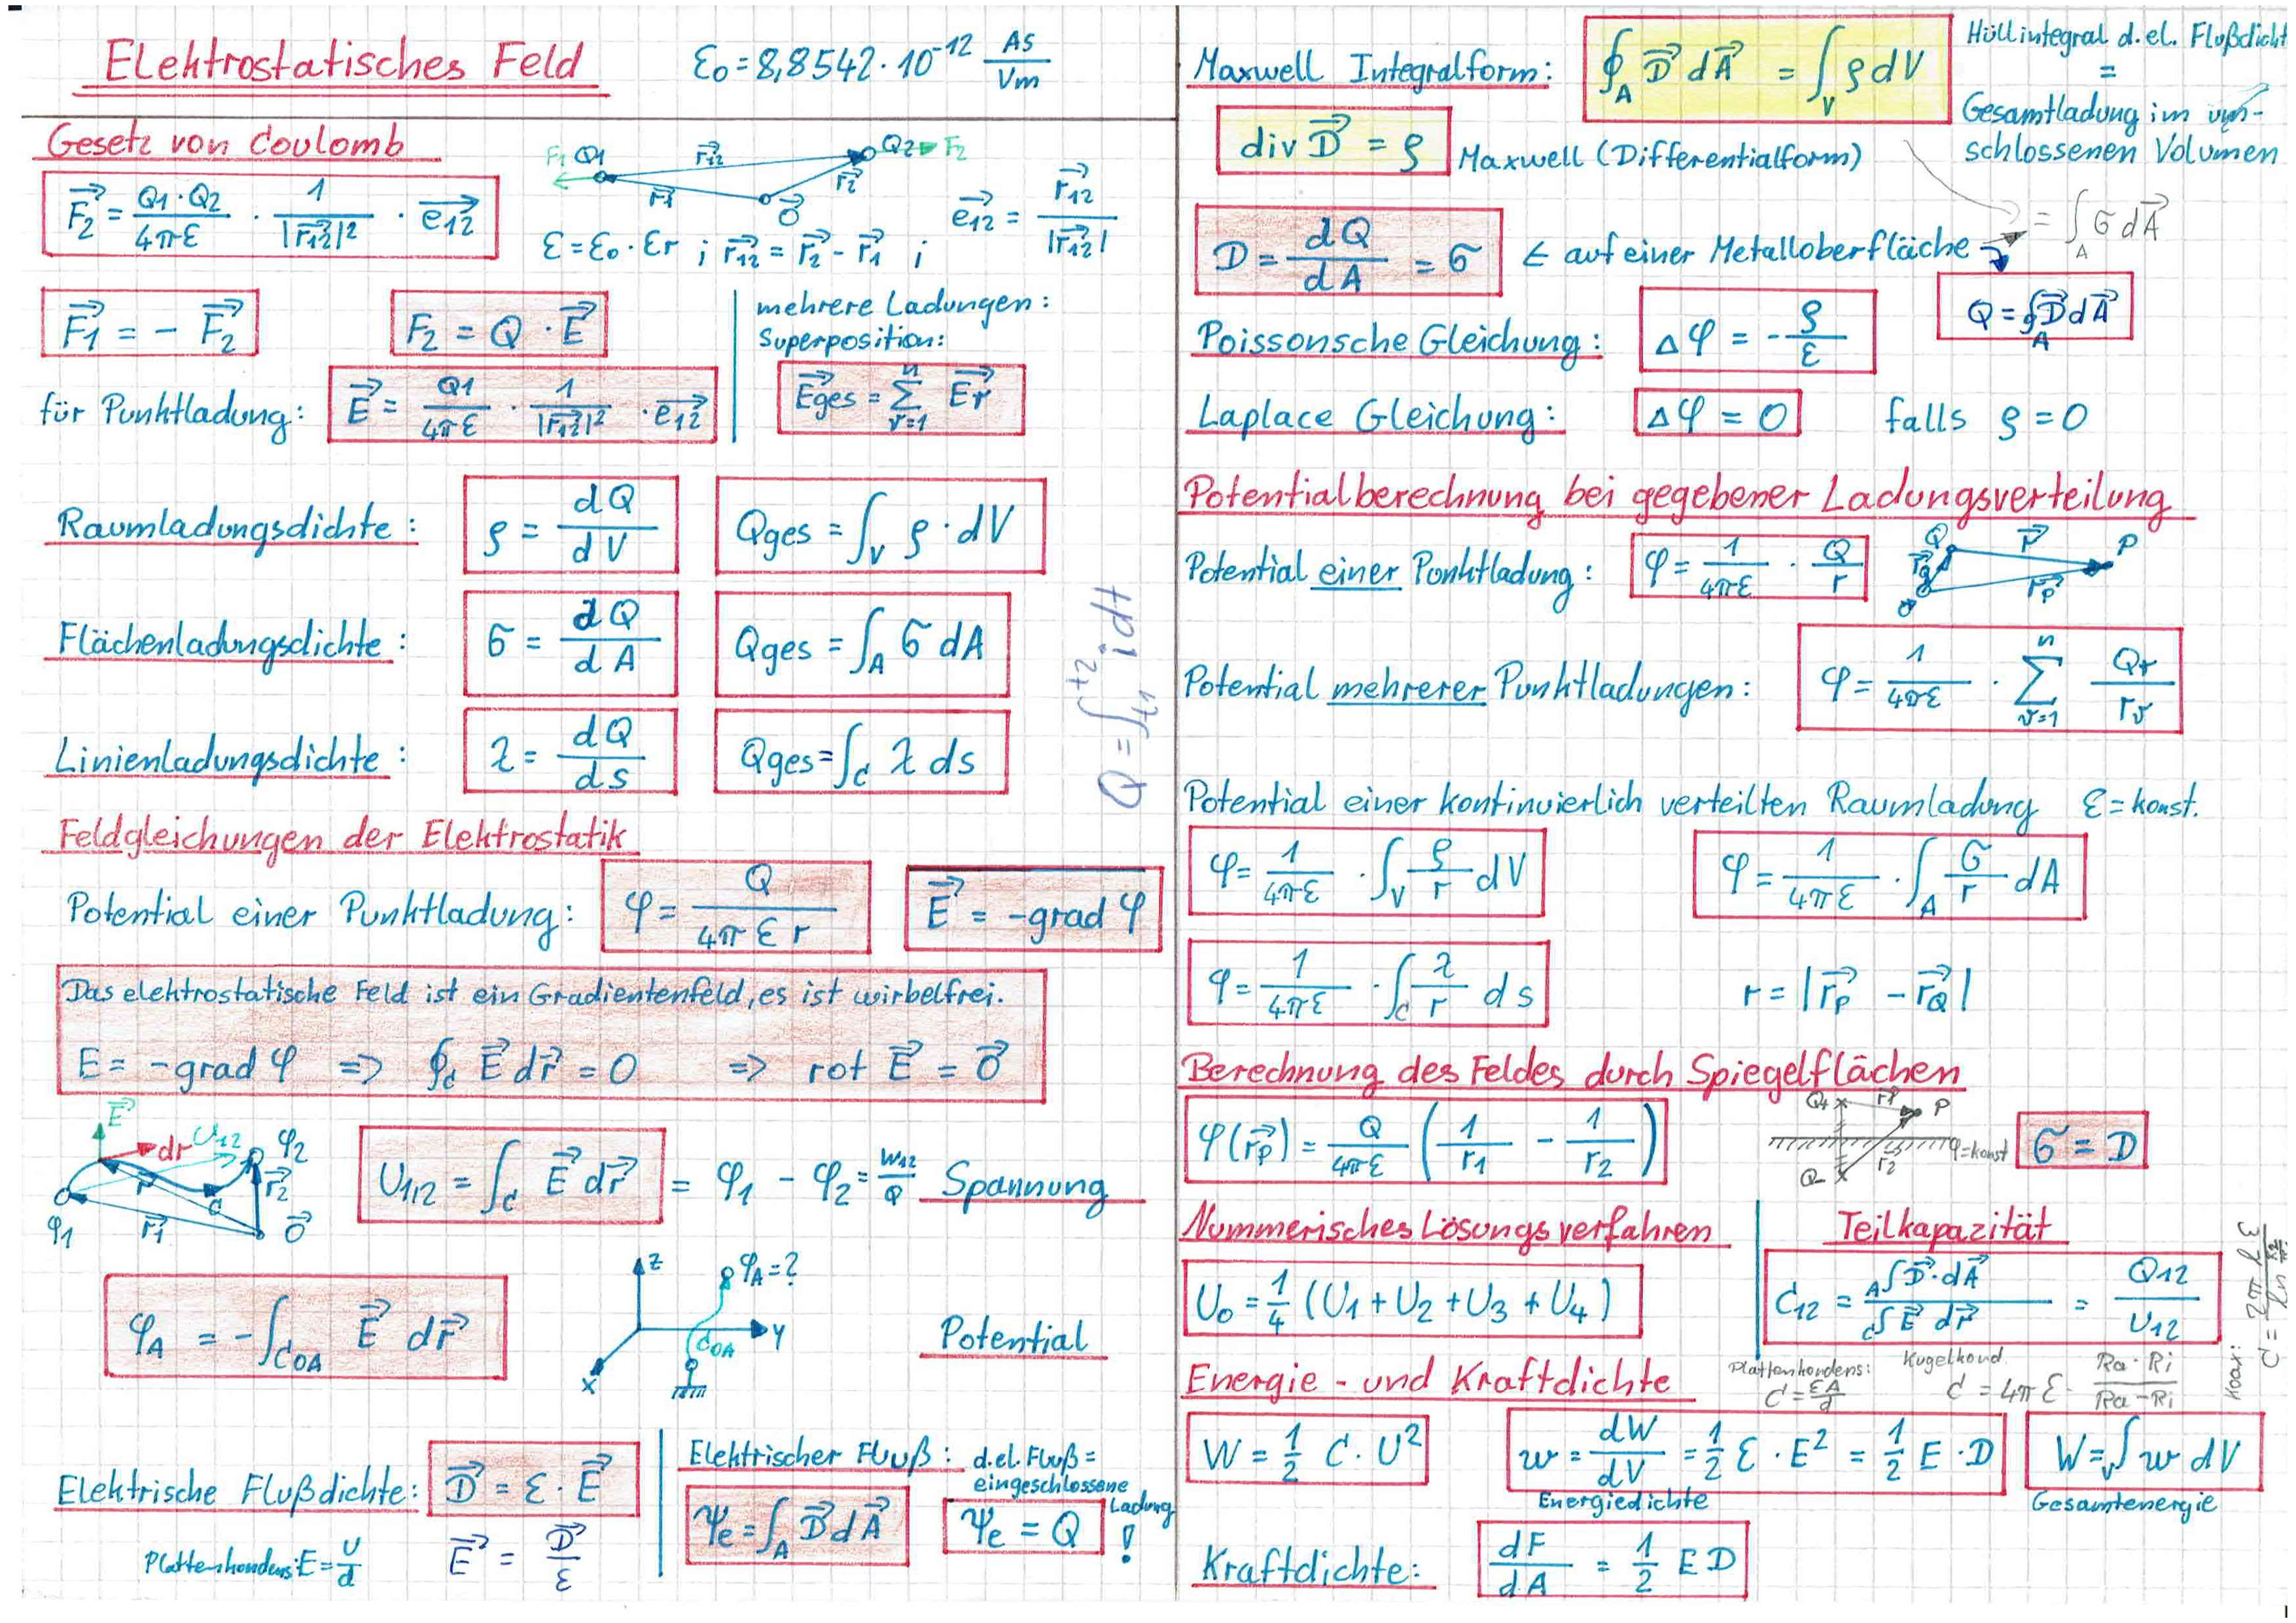 Elektrostatisches Feld
ε₀ = 8,8542 · 10⁻¹² As/Vm
Gesetz von Coulomb
F⃗₂ = Q1·Q2/4πε · 1/|r⃗₁₂|² · e⃗₁₂
F1 Q1 r⃗₁₂ Q2 F2
r⃗₁ r⃗₂ 0⃗
ε = ε₀ · εr ; r⃗₁₂ = r⃗₂ - r⃗₁ ; e⃗₁₂ = r⃗₁₂/|r⃗₁₂|
F⃗₁ = - F⃗₂
F₂ = Q · E⃗
mehrere Ladungen:
Superposition:
E⃗ges = Σ_{ν=1}^{n} E⃗ν
für Punktladung: E⃗ = Q1/4πε · 1/|r⃗₁₂|² · e⃗₁₂
Raumladungsdichte: ρ = dQ/dV Qges = ∫_V ρ · dV
Flächenladungsdichte: σ = dQ/dA Qges = ∫_A σ dA
Linienladungsdichte: λ = dQ/ds Qges = ∫_C λ ds
Q = ∫_{t1}^{t2} i dt
Feldgleichungen der Elektrostatik
Potential einer Punktladung: φ = Q/4πεr E⃗ = -grad φ
Das elektrostatische Feld ist ein Gradientenfeld, es ist wirbelfrei.
E = -grad φ => ∮_C E⃗ dr⃗ = 0 => rot E⃗ = 0⃗
E⃗ dr U12 φ2
r⃗ C r⃗₂
φ1 r⃗₁ 0⃗
U₁,₂ = ∫_C E⃗ dr⃗ = φ₁ - φ₂ = W12/Q Spannung
φ_A = -∫_{C0A} E⃗ dr⃗
Z φA = ?
C0A Y
X
Potential
Elektrische Flußdichte: D⃗ = ε · E⃗
Plattenkondens: E = U/d
E⃗ = D⃗/ε
Elektrischer Fluß: d.el. Fluß =
eingeschlossene
Ladung !
Ψe = ∫_A D⃗ dA⃗
Ψe = Q
Maxwell Integralform: ∮_A D⃗ dA⃗ = ∫_V ρ dV
Hüllintegral d. el. Flußdicht
=
Gesamtladung im um-
schlossenen Volumen
div D⃗ = ρ Maxwell (Differentialform)
= ∫_A σ dA⃗
D = dQ/dA = σ ← auf einer Metalloberfläche
Q = ∮_A D⃗ dA⃗
Poissonsche Gleichung: Δφ = -ρ/ε
Laplace Gleichung: Δφ = 0 falls ρ = 0
Potentialberechnung bei gegebener Ladungsverteilung
Potential einer Punktladung: φ = 1/4πε · Q/r
Q r⃗ P
r⃗Q r⃗p
0
Potential mehrerer Punktladungen: φ = 1/4πε · Σ_{ν=1}^{n} Qν/rν
Potential einer kontinuierlich verteilten Raumladung ε = konst.
φ = 1/4πε · ∫_V ρ/r dV
φ = 1/4πε · ∫_A σ/r dA
φ = 1/4πε · ∫_C λ/r ds
r = |r⃗_P - r⃗_Q|
Berechnung des Feldes durch Spiegelflächen
φ(r⃗_P) = Q/4πε (1/r₁ - 1/r₂)
Q+ r1 P
φ=konst
Q- r2
σ = D
Nummerisches Lösungsverfahren
U₀ = 1/4 (U₁ + U₂ + U₃ + U₄)
Teilkapazität
C₁₂ = A∫ D⃗·dA⃗ / C∫ E⃗ dr⃗ = Q12/U12
Plattenkondens: C = εA/d
Kugelkond. C = 4πε · Ra·Ri/Ra-Ri
Koax:
Energie- und Kraftdichte
W = 1/2 C · U²
w = dW/dV = 1/2 ε · E² = 1/2 E · D
Energiedichte
W = ∫_V w dV
Gesamtenergie
Kraftdichte: dF/dA = 1/2 E D